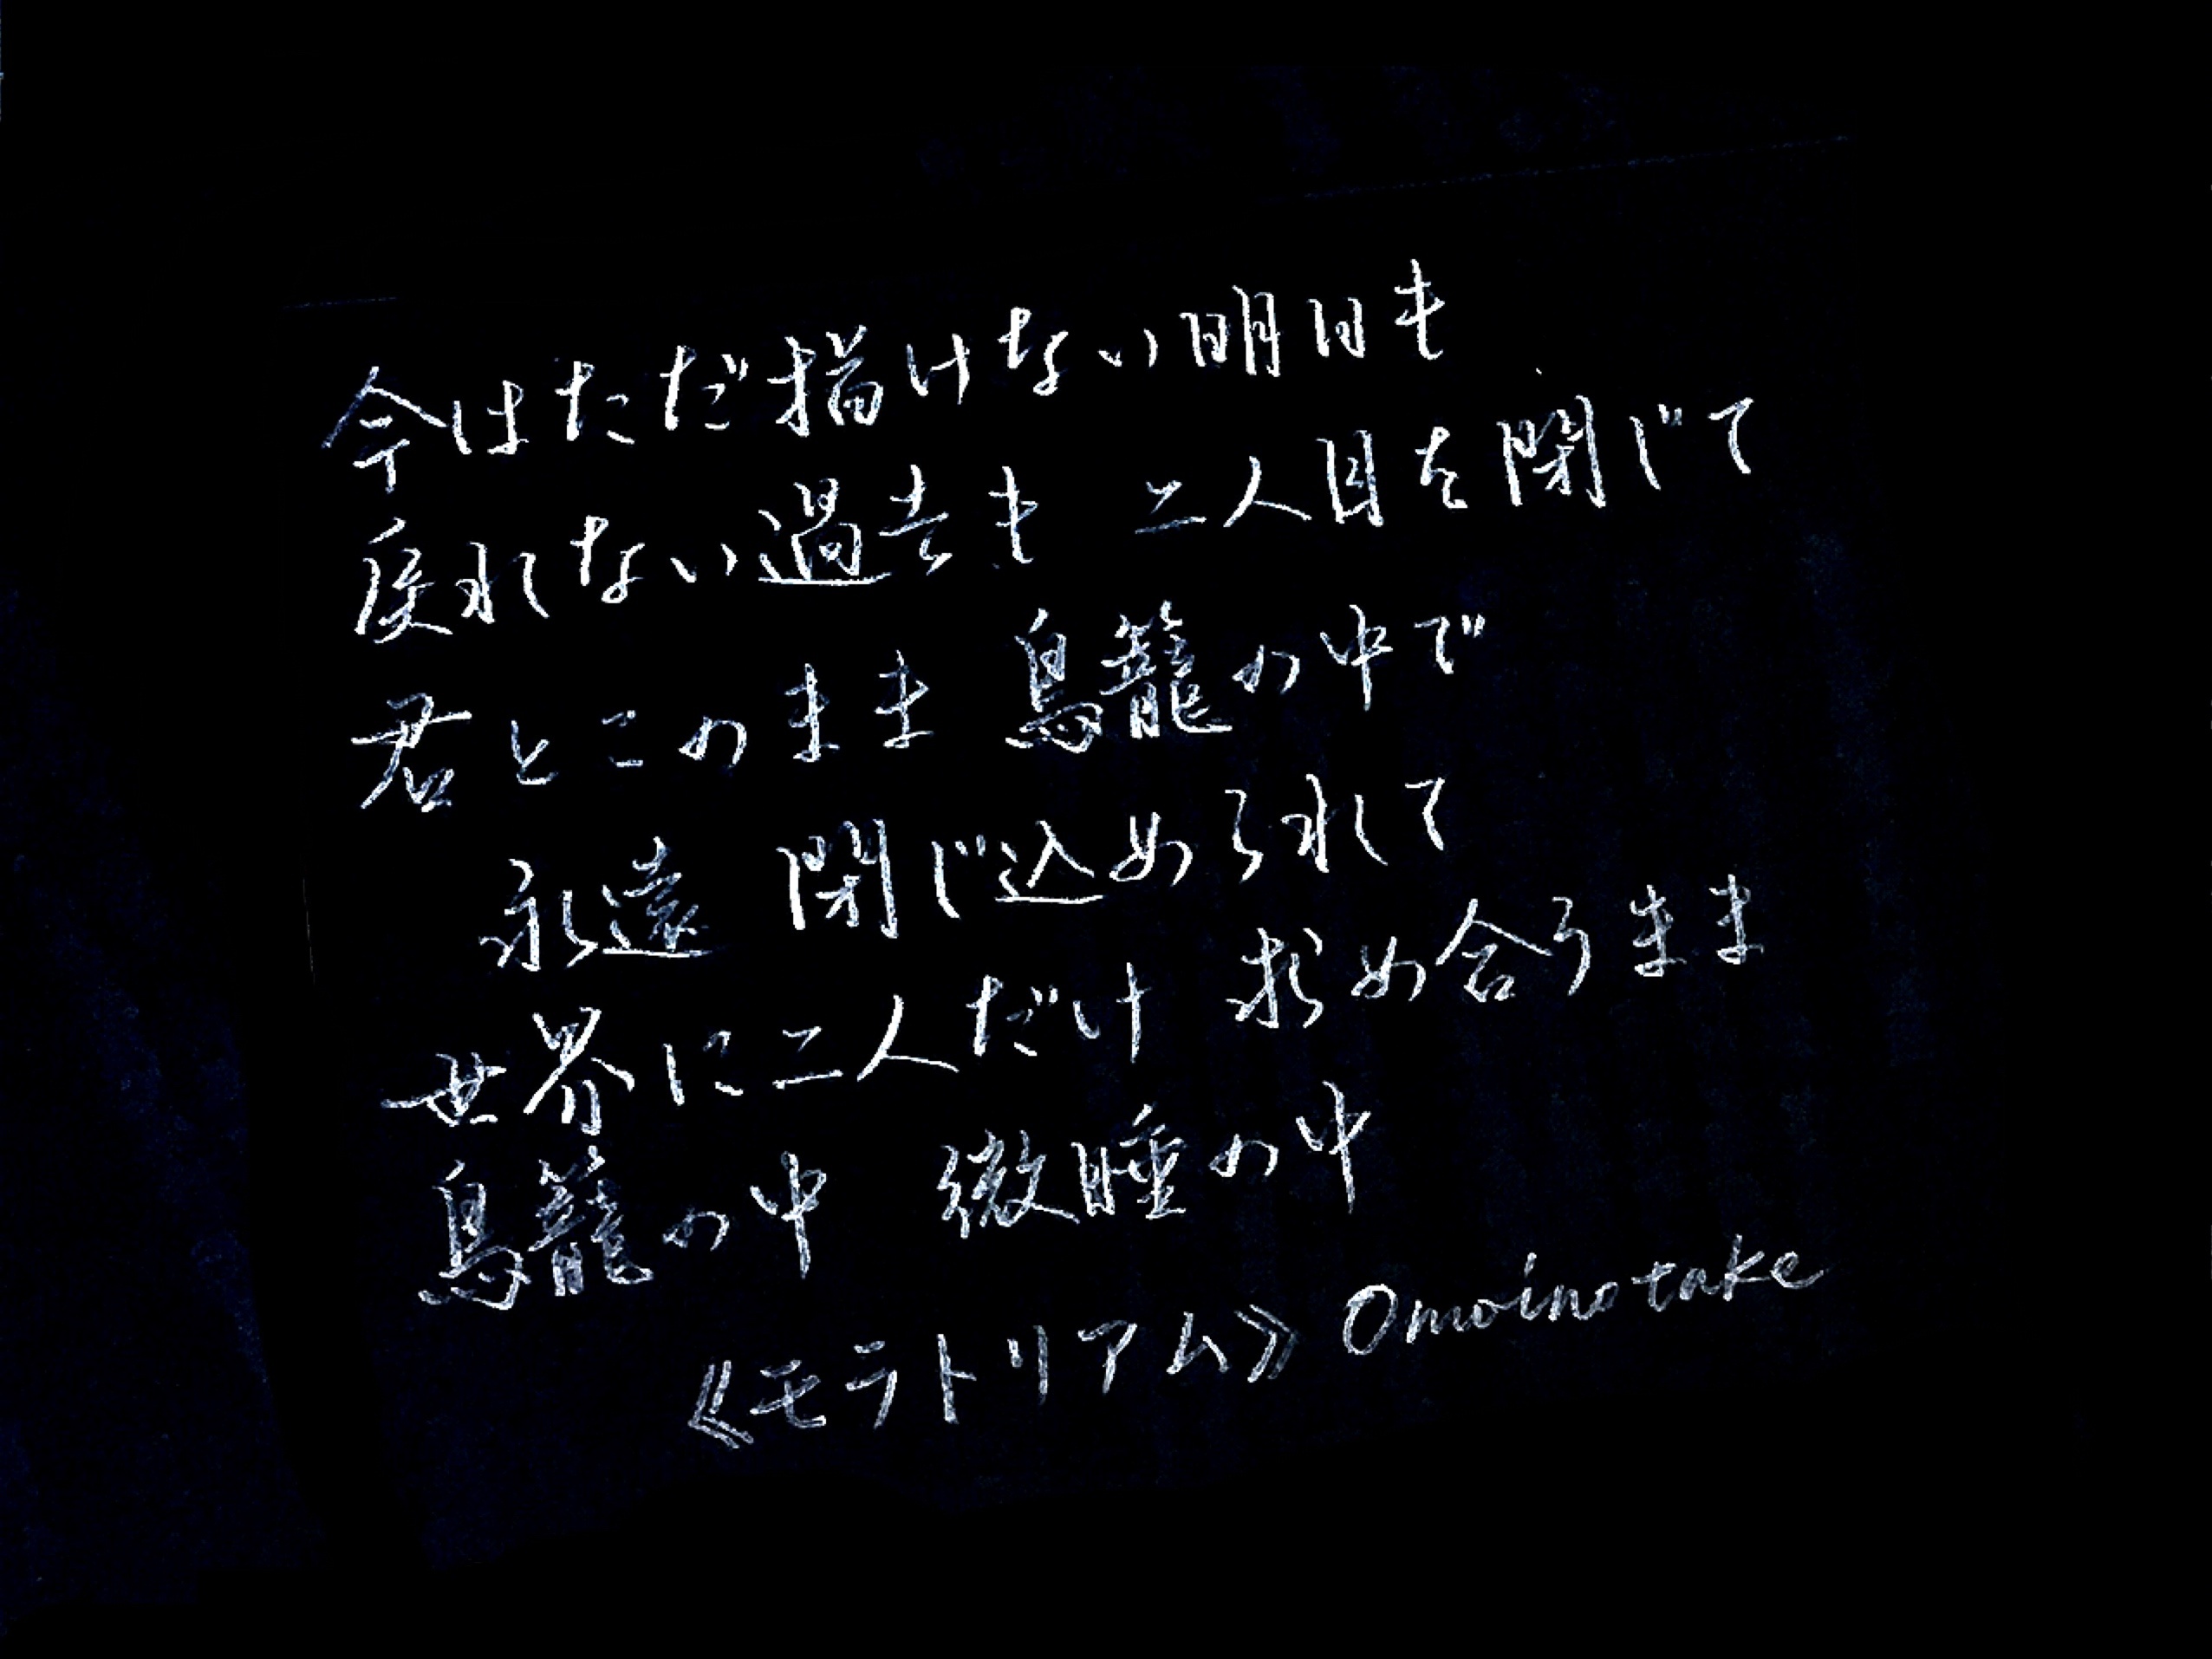 今はただ描けない明日も
戻れない過去も 二人目を閉じて
君とこのまま 鳥籠の中で
永遠 閉じ込められて
世界に二人だけ 求め合うまま
鳥籠の中 微睡の中
《モラトリアム》 Omoinotake